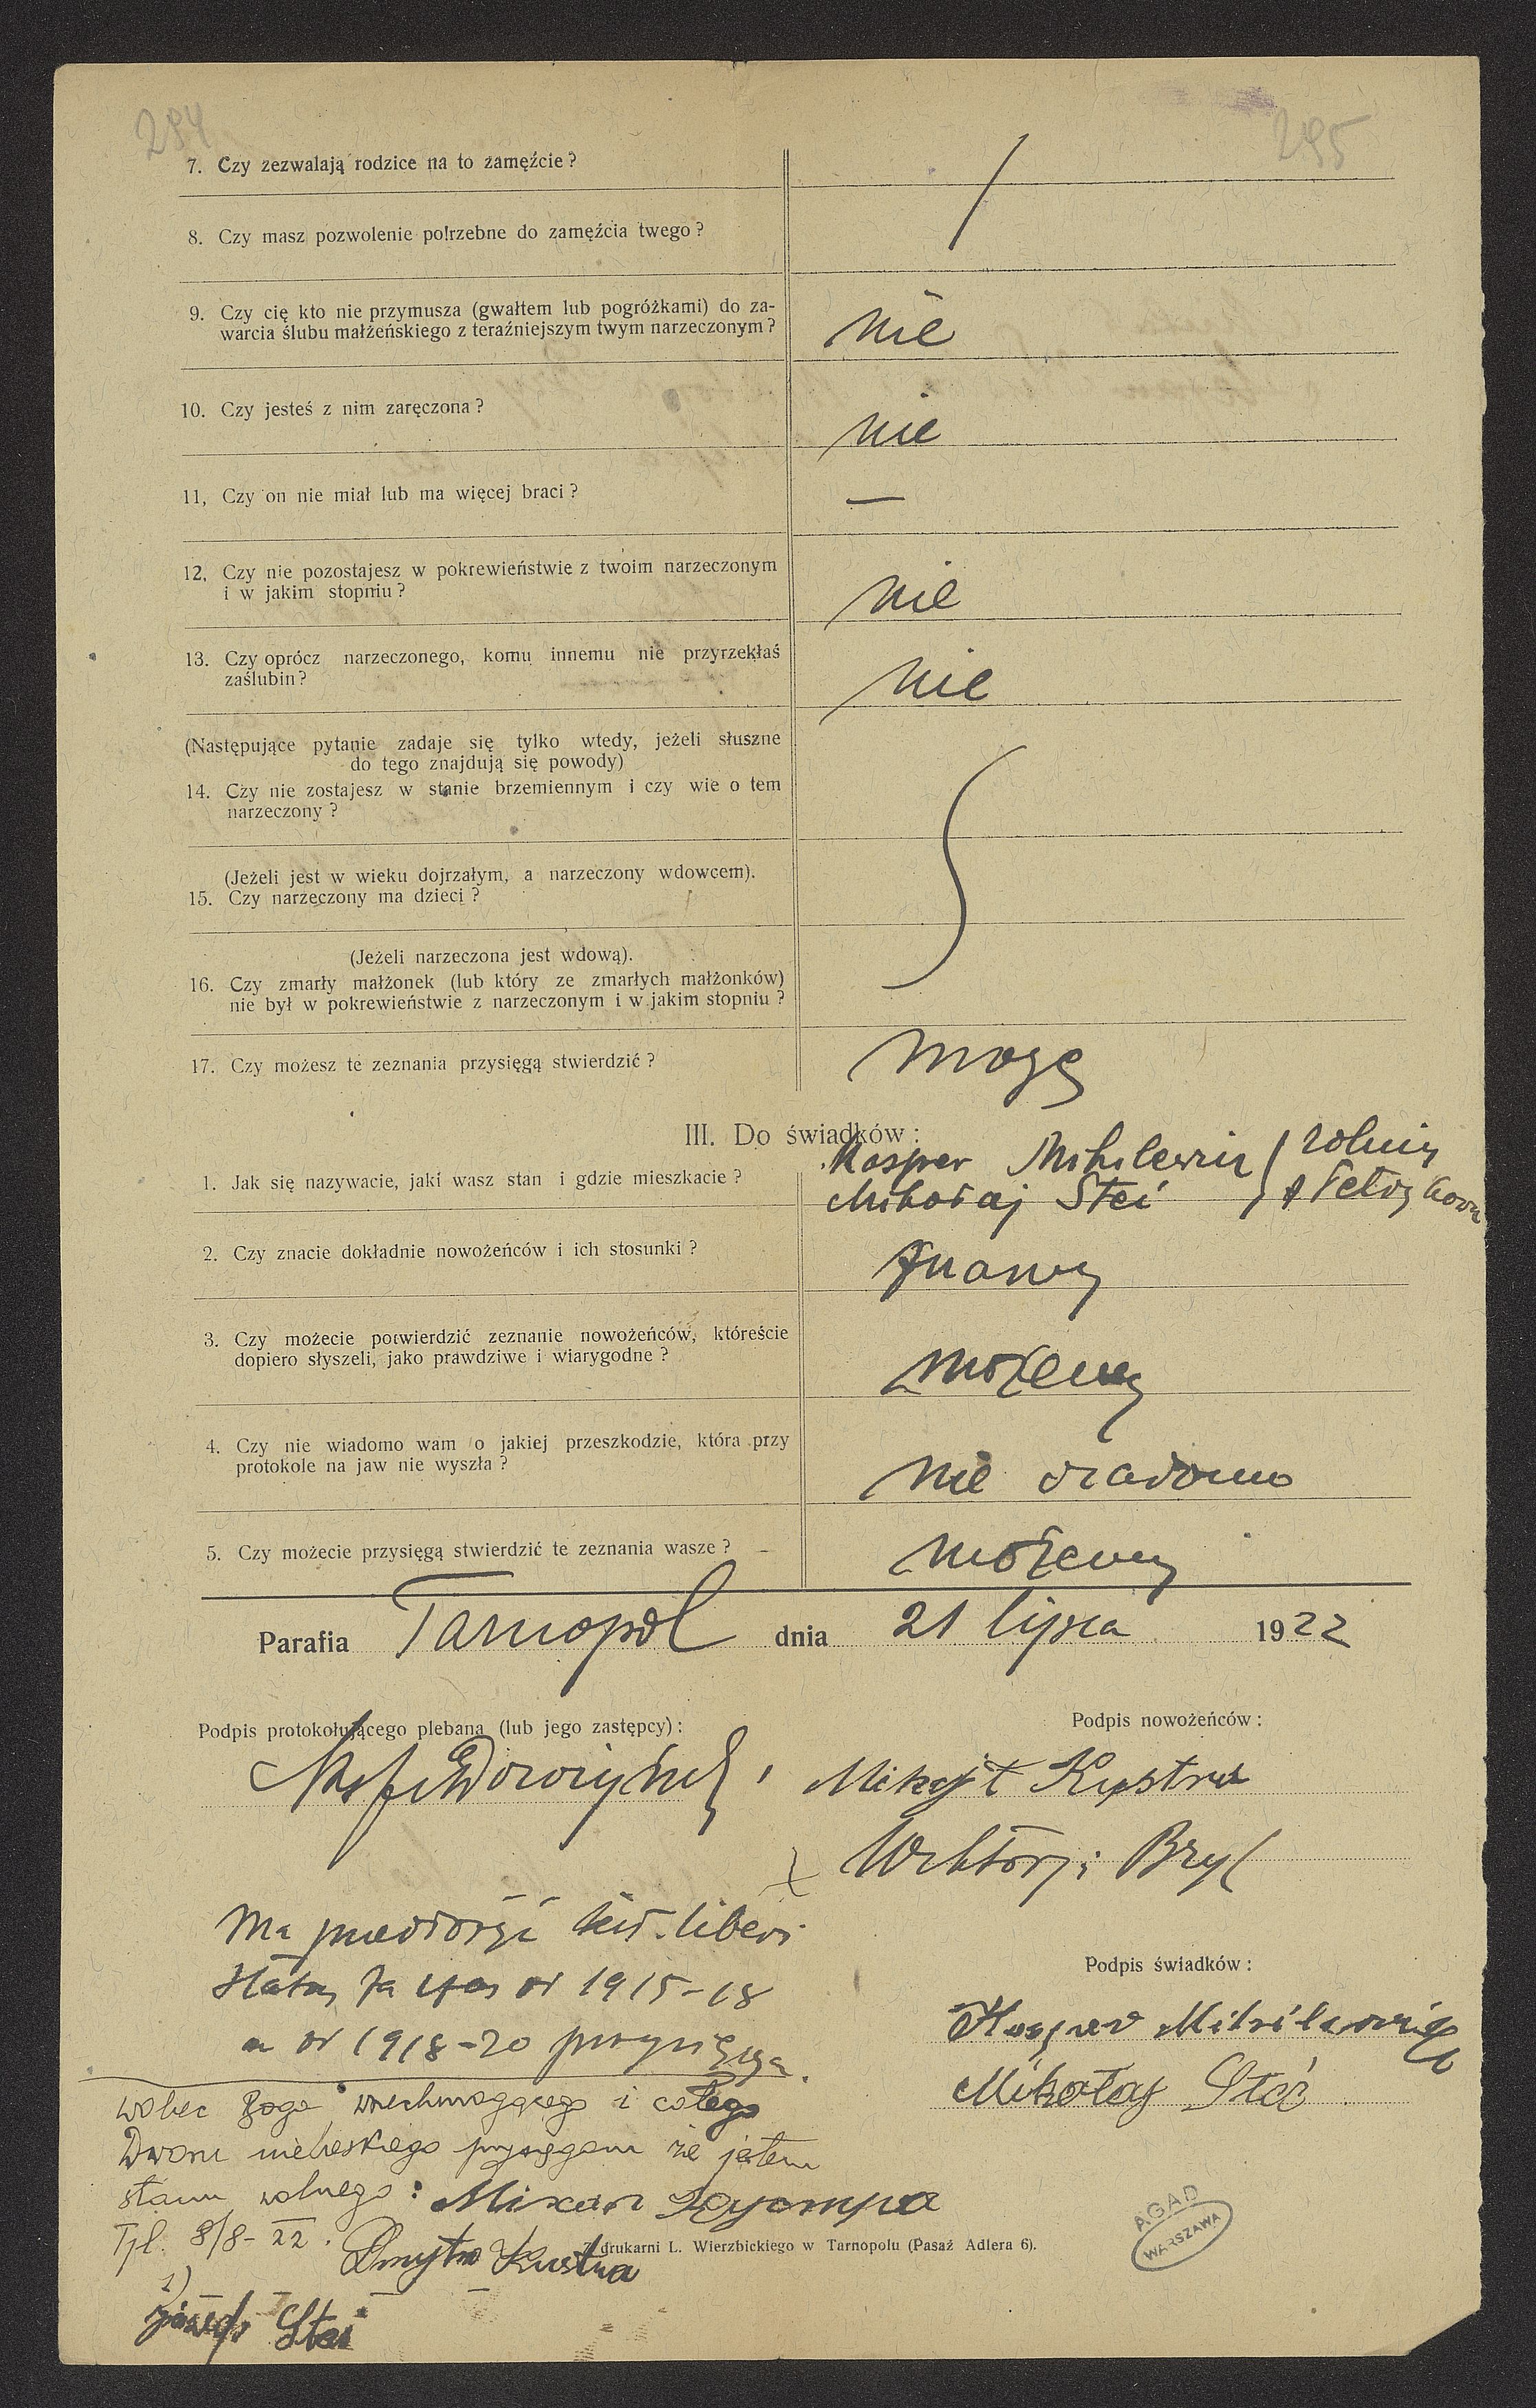 284
295
7. Czy zezwalają rodzice na to zamęźcie?
8. Czy masz pozwolenie potrzebne do zamęźcia twego?
9. Czy cię kto nie przymusza (gwałtem lub pogróżkami) do za-
warcia ślubu małżeńskiego z teraźniejszym twym narzeczonym?
nie
10. Czy jesteś z nim zaręczona?
nie
11, Czy on nie miał lub ma więcej braci?
—
12, Czy nie pozostajesz w pokrewieństwie z twoim narzeczonym
i w jakim stopniu?
nie
13. Czy oprócz narzeczonego, komu innemu nie przyrzekłaś
zaślubin?
nie
(Następujące pytanie zadaje się tylko wtedy, jeżeli słuszne
do tego znajdują się powody)
14. Czy nie zostajesz w stanie brzemiennym i czy wie o tem
narzeczony?
(Jeżeli jest w wieku dojrzałym, a narzeczony wdowcem).
15. Czy narzeczony ma dzieci?
(Jeżeli narzeczona jest wdową).
16. Czy zmarły małżonek (lub który ze zmarłych małżonków)
nie był w pokrewieństwie z narzeczonym i w jakim stopniu?
17. Czy możesz te zeznania przysięgą stwierdzić?
mogę
III. Do świadków:
1. Jak się nazywacie, jaki wasz stan i gdzie mieszkacie?
Kasper Mikilewicz rolnicy
Mikołaj Steć
2. Czy znacie dokładnie nowożeńców i ich stosunki?
znamy
3. Czy możecie potwierdzić zeznanie nowożeńców, któreście
dopiero słyszeli, jako prawdziwe i wiarygodne?
możemy
4. Czy nie wiadomo wam o jakiej przeszkodzie, która przy
protokole na jaw nie wyszła?
nie wiadomo
5. Czy możecie przysięgą stwierdzić te zeznania wasze?
możemy
Parafia Tarnopol dnia 21 lipca 1922
Podpis protokołującego plebana (lub jego zastępcy):
Podpis nowożeńców:
Kustra
Wiktorji Bryl
Ma przedłożyć liberi
status za czas od 1915-18
a od 1918-20 przysięga.
Podpis świadków:
Kasper Mikilewicz
Mikołaj Steć
wobec Boga wszechmogącego i całego
Dworu niebieskiego przysięgam że jestem
stanu wolnego:
Tpl. 8/8-22.
Dmytro Kustra
Z drukarni L. Wierzbickiego w Tarnopolu (Pasaż Adlera 6).
1)
Józef Steć
AGAD
WARSZAWA